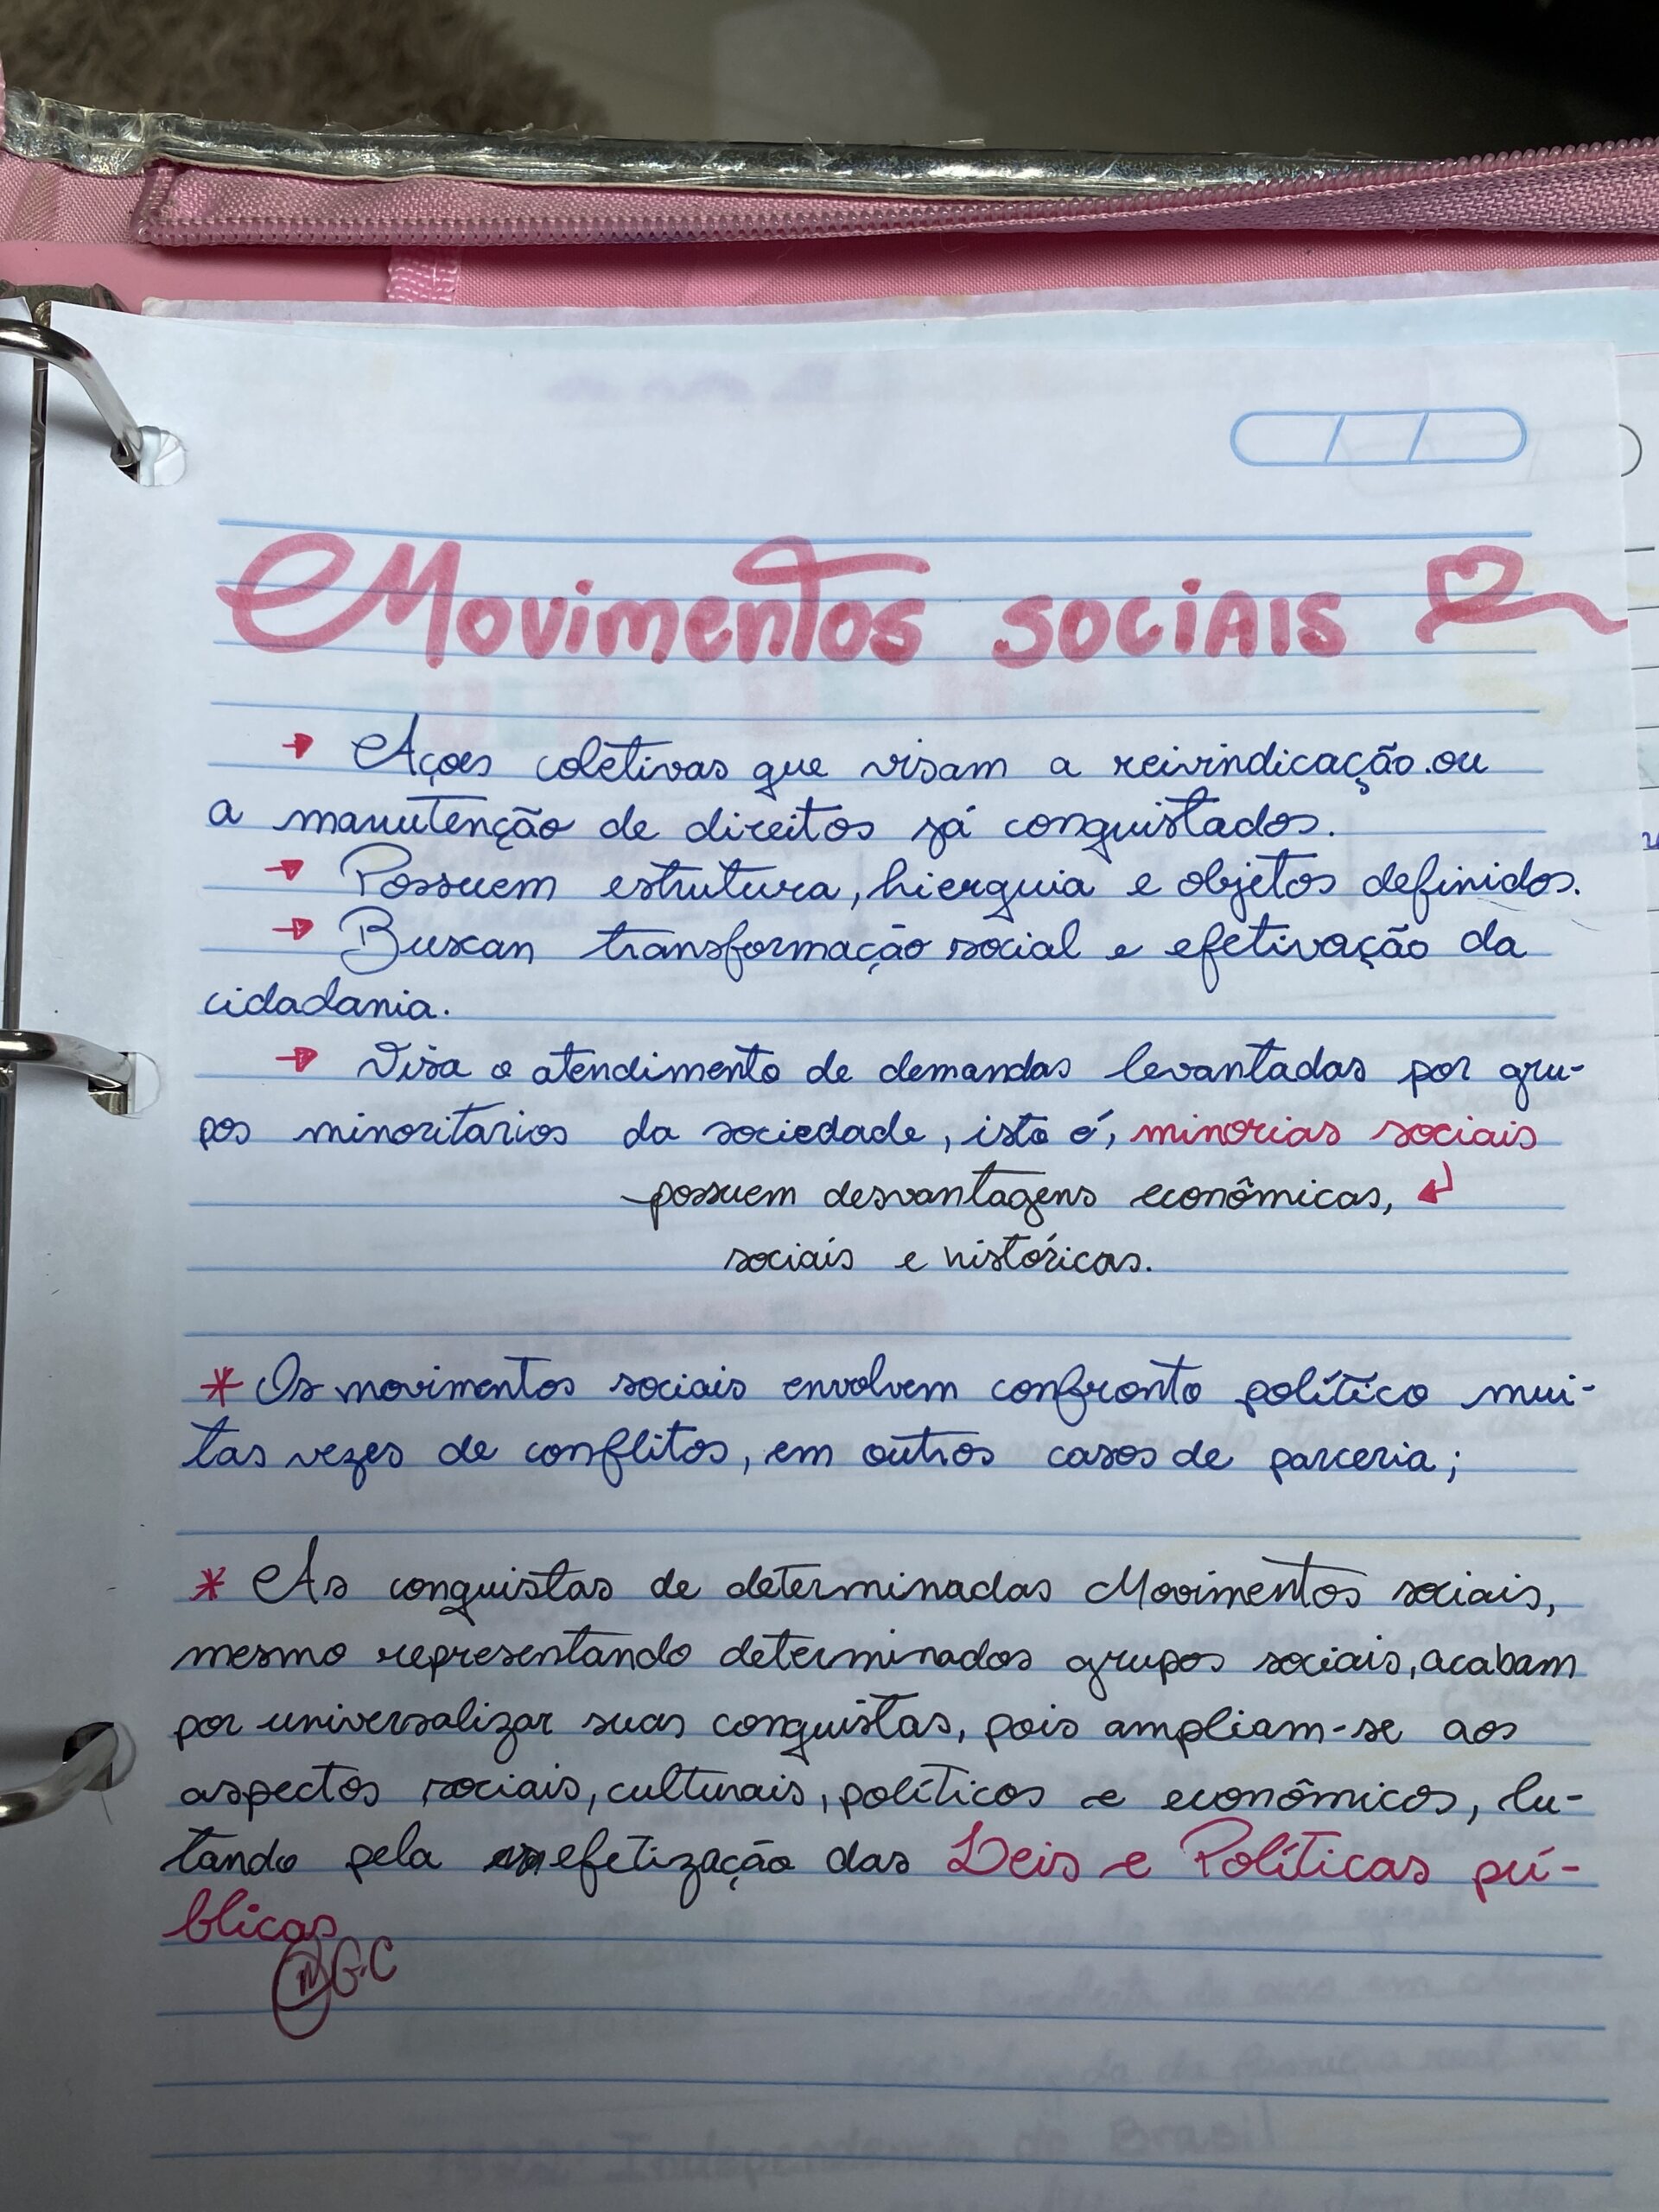 Movimentos sociais
→ Açoes coletivas que visam a reivindicação ou
a manutenção de direitos já conquistados.
→ Possuem estrutura, hierquia e objetos definidos.
→ Buscan transformação social e efetivação da
cidadania.
→ Visa o atendimento de demandas levantadas por gru-
pos minoritarios da sociedade, isto é, minorias sociais
possuem desvantagens econômicas,
sociais e históricas.
* Os movimentos sociais envolvem confronto político mui-
tas vezes de conflitos, em outros casos de parceria;
* As conquistas de determinadas Movimentos sociais,
mesmo representando determinados grupos sociais, acabam
por universalizar suas conquistas, pois ampliam-se aos
aspectos sociais, culturais, políticos e econômicos, lu-
tando pela efetização das Leis e Políticas pú-
blicas
G.C
Independencia do Brasil